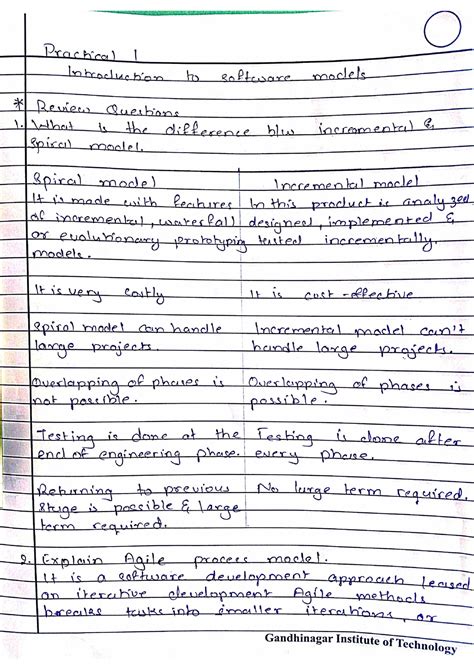 Practical 1
Introduction to software models
* Review Questions
1. What is the difference b/w incremental &
spiral model.
Spiral model
It is made with features
of incremental, waterfall
or evolutionary prototyping
models.
Incremental model
In this product is analyzed
designed, implemented &
tested incrementally.
It is very costly
It is cost-effective
Spiral model can handle
large projects.
Incremental model can't
handle large projects.
Overlapping of phases is
not possible.
Overlapping of phases is
possible.
Testing is done at the
end of engineering phase.
Testing is done after
every phase.
Returning to previous
stage is possible & large
term required.
No large term required.
2. Explain Agile process model.
It is a software development approach based
on iterative development Agile methods
breaks tasks into smaller iterations, or
Gandhinagar Institute of Technology